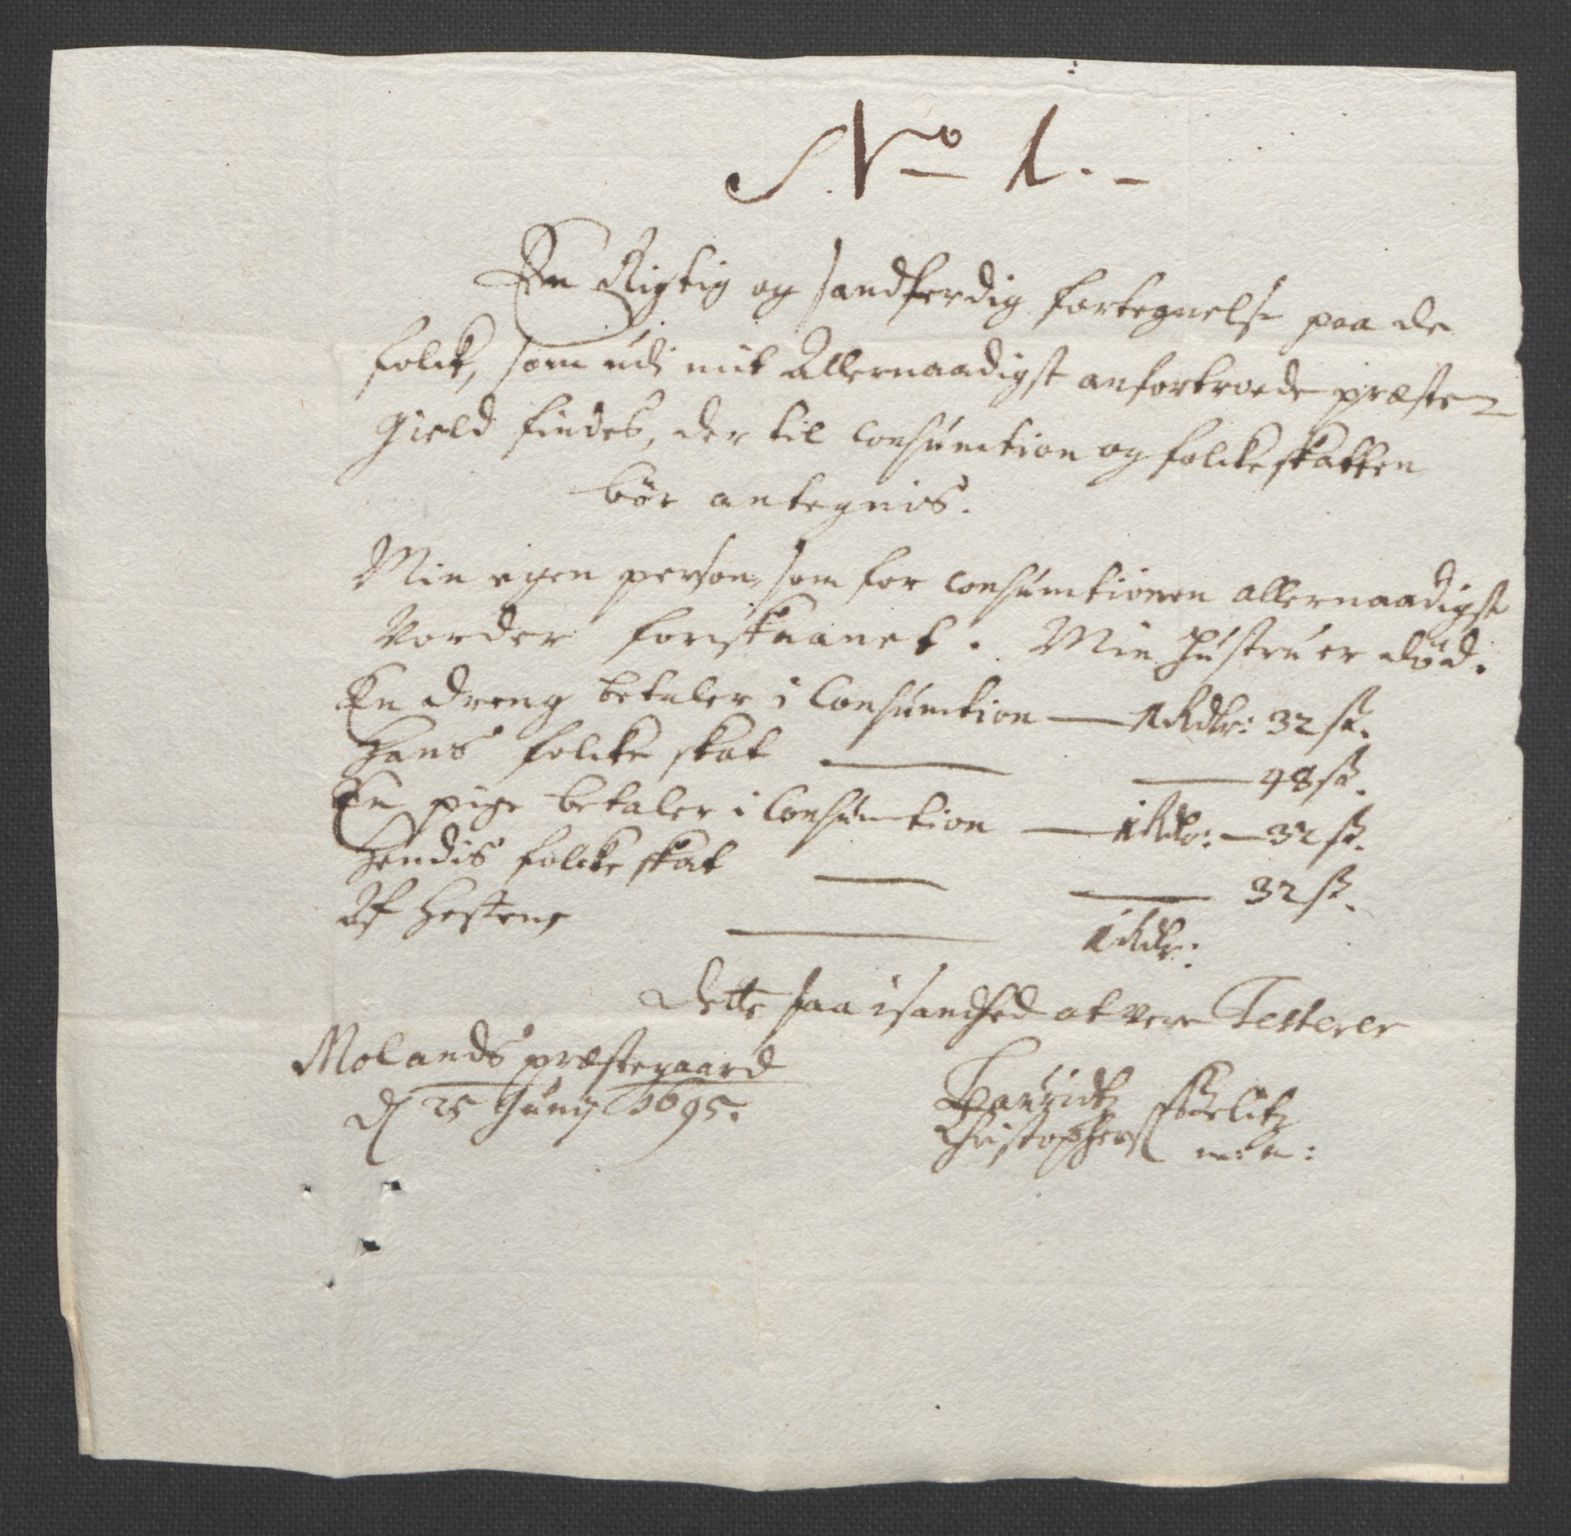 No 1.
En Rigtig og sandferdig fortegnelse paa de
folck, som udi mit Allernaadigst anfortroede præste-
gield findes, der til Consumtion og folckeskatten
bør antegnis.
Min egen person, som for Consumtionen allernaadigst
Vorder forskaanet. Min hustru er død.
En dreng betaler i Consumtion — 1 Rdlr: 32 sk.
Hans folcke skat — — 48 sk.
En pige betaler i Consumtion — 1 Rdlr: — 32 sk.
Hendis folcke skat — — 32 sk.
Af hesten — 1 Rdlr:
Dette saa i sandhed at vere Testerer
Molands præstegaard
d 25 Junij 1695.
Christophers
m: m: